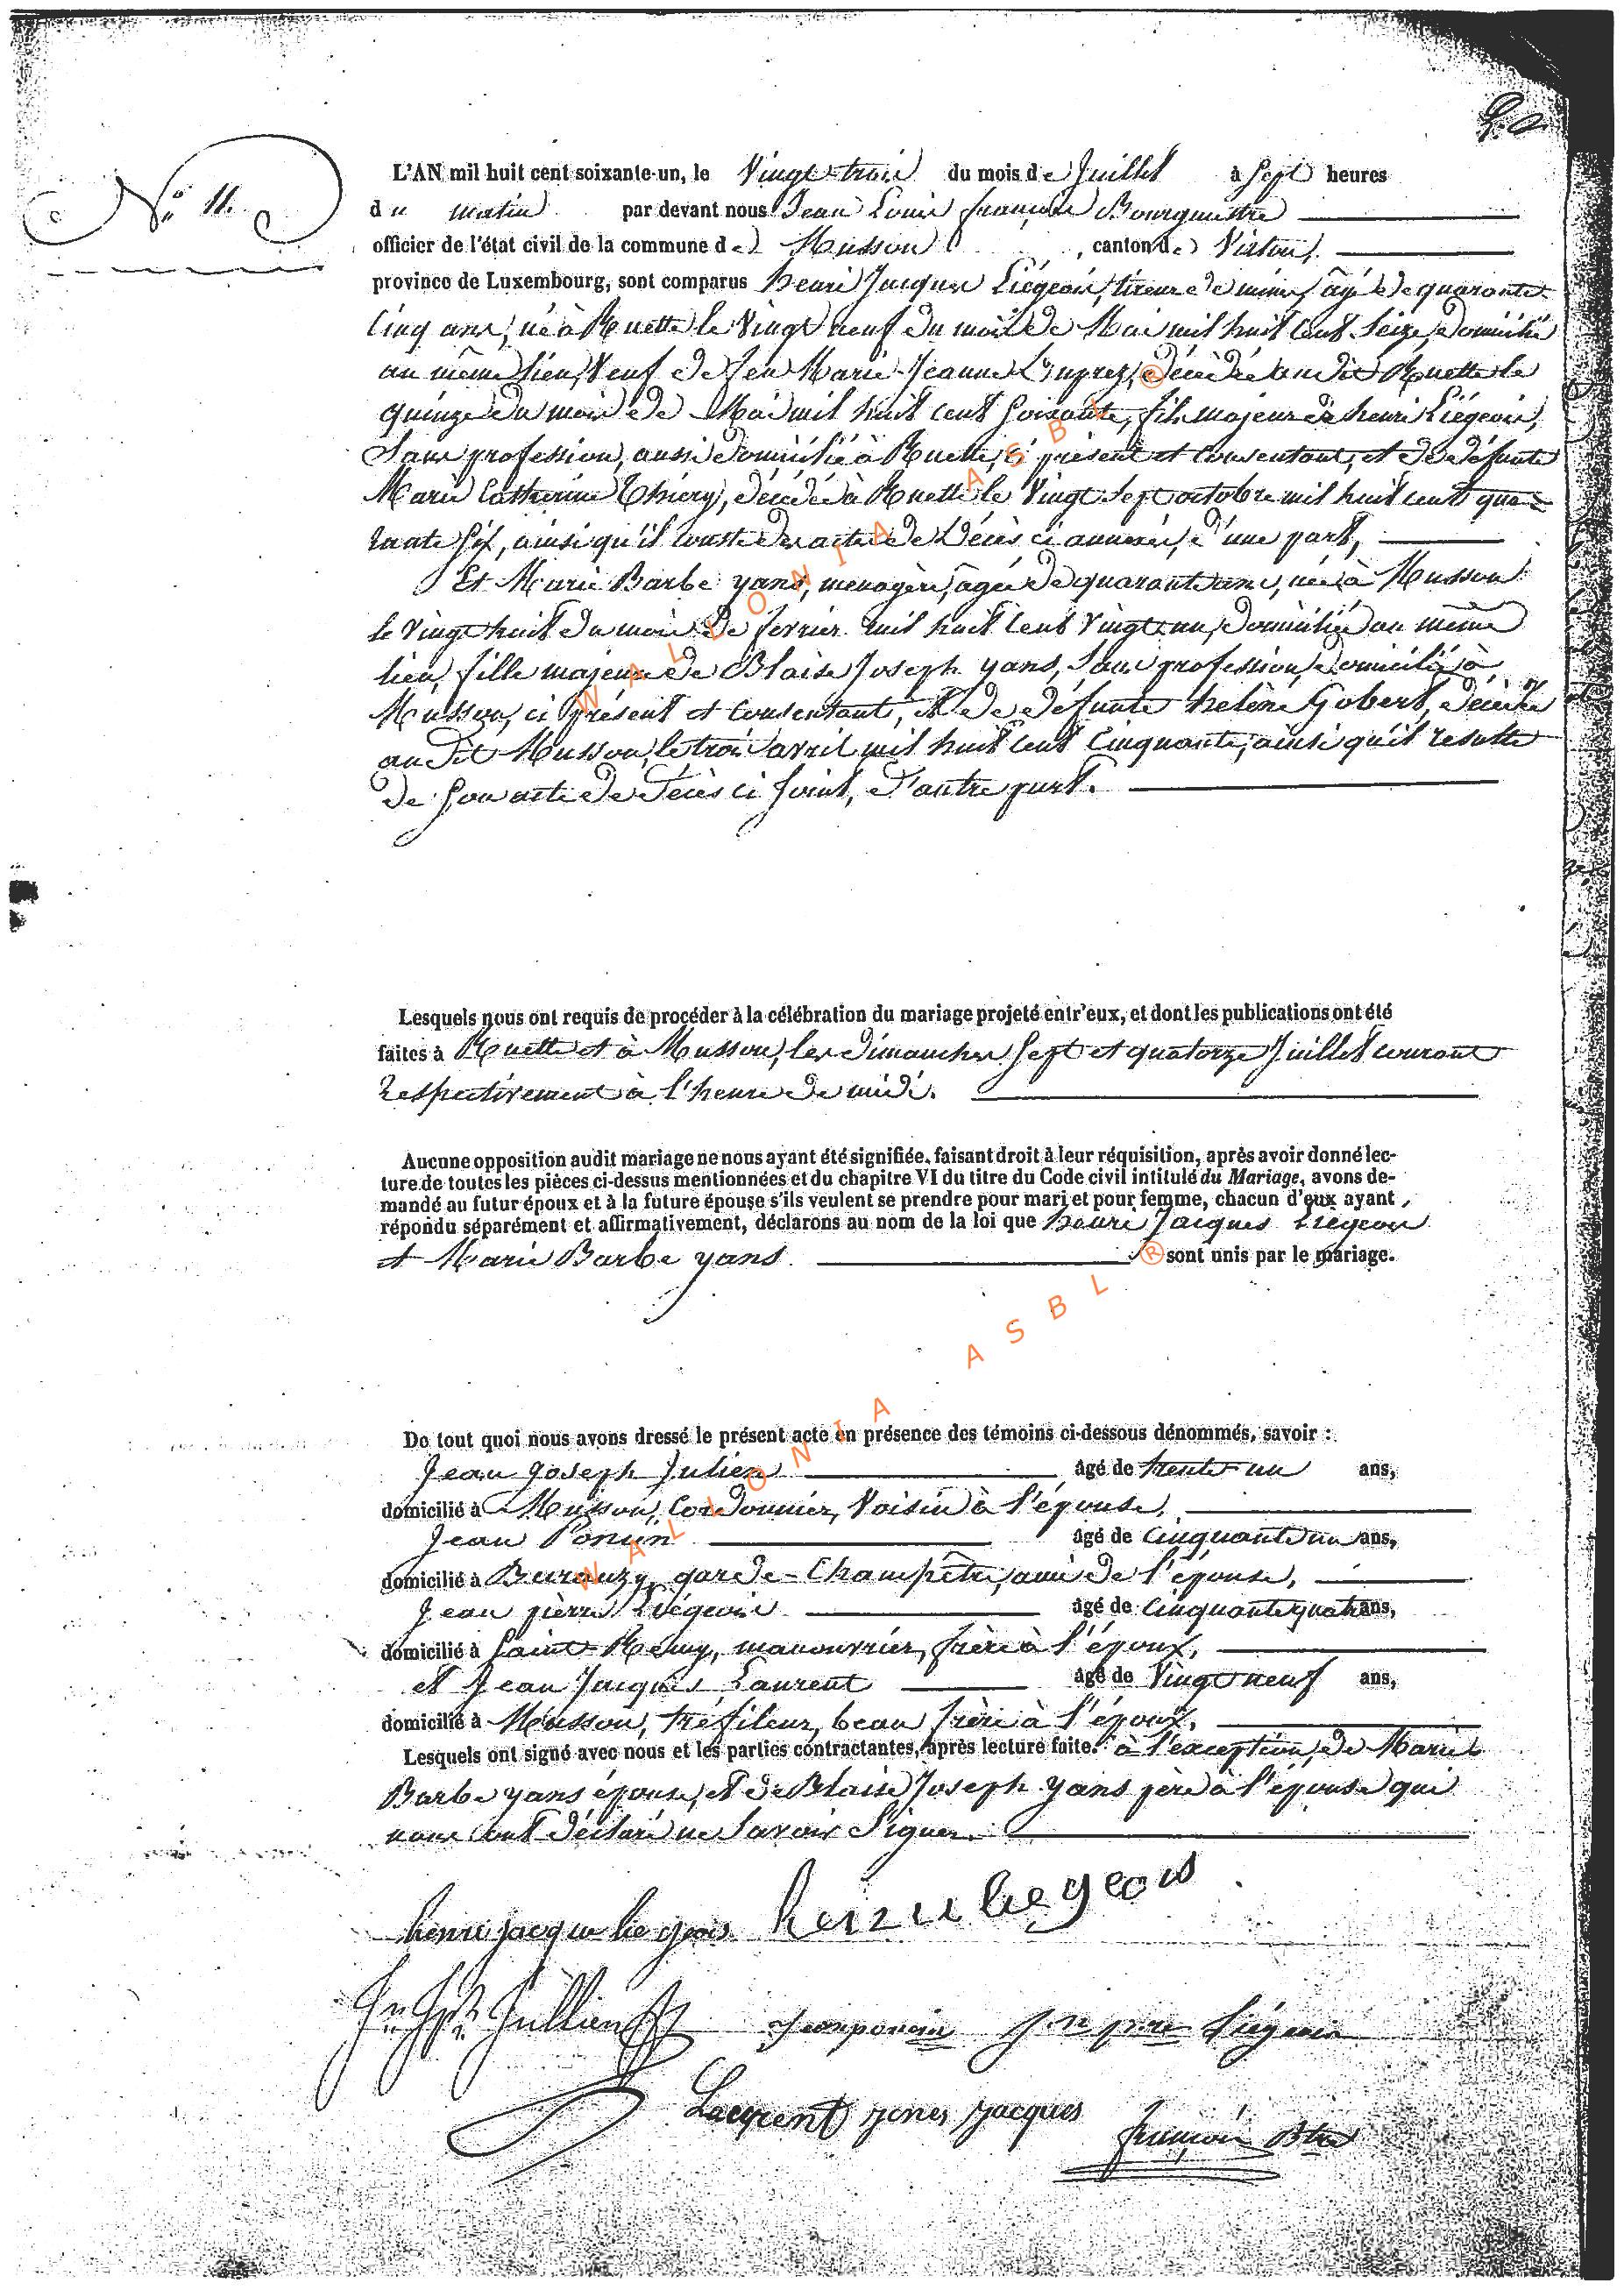 N.º 11.
L'AN mil huit cent soixante-un, le Vingt-trois du mois de Juillet à Sept heures
du matin par devant nous Jean Louis françois Bourgmestre
officier de l'état civil de la commune de Musson, canton de Virton,
province de Luxembourg, sont comparus henri Jacques Liégeois, tireur de mine, âgé de quarante
Cinq ans, né à Ruette le Vingt neuf du mois de Mai mil huit cent Seize, domicilié
au même lieu, Veuf de feu Marie Jeanne décédée au dit Ruette le
quinze du mois de Mai mil huit cent Soixante, fils majeur de henri Liégeois,
Sans profession, aussi domicilié à Ruette, ci présent et consentant, et de défunte
Marie Catherine Thiéry, décédée à Ruette le Vingt Sept octobre mil huit cent qua-
rante Six, ainsi qu'il conste des actes de Décès ci annexés, d'une part,
Et Marie Barbe yans, menagère, âgée de quarante ans, née à Musson
le Vingt huit du mois de fevrier mil huit cent Vingt un, domiciliée au même
lieu, fille majeure de Blaise Joseph yans, Sans profession, domicilié à
Musson, ci présent et consentant, et de défunte helène Gobert, décédée
au dit Musson, le trois avril mil huit cent Cinquante, ainsi qu'il resulte
de Son acte de décès ci joint, d'autre part.
Lesquels nous ont requis de procéder à la célébration du mariage projeté entr'eux, et dont les publications ont été
faites à Ruette et à Musson, les dimanches Sept et quatorze Juillet courant
respectivement à l'heure de midi.
Aucune opposition audit mariage ne nous ayant été signifiée, faisant droit à leur réquisition, après avoir donné lec-
ture de toutes les pièces ci-dessus mentionnées et du chapitre VI du titre du Code civil intitulé du Mariage, avons de-
mandé au futur époux et à la future épouse s'ils veulent se prendre pour mari et pour femme, chacun d'eux ayant
répondu séparément et affirmativement, déclarons au nom de la loi que henri Jacques Liégeois
et Marie Barbe yans sont unis par le mariage.
De tout quoi nous avons dressé le présent acte en présence des témoins ci-dessous dénommés, savoir :
Jean Joseph Julien âgé de trente-un ans,
domicilié à Musson, Cordonnier, Voisin à l'épouse,
Jean Poncin âgé de Cinquante un ans,
domicilié à Baranzy, garde-Champêtre, ami de l'épouse,
Jean pierre Liégeois âgé de Cinquante quatre ans,
domicilié à Saint-Remy, manouvrier, frère à l'époux,
et Jean Jacques Laurent âgé de Vingt neuf ans,
domicilié à Musson, tréfileur, beau frère à l'époux.
Lesquels ont signé avec nous et les parties contractantes, après lecture faite. à l'exception de Marie
Barbe yans épouse, et de Blaise Joseph yans père à l'épouse qui
nous ont déclaré ne Savoir Signer.
henri jacque liegeois henri liegeois
Jn Jph Jullien Jean poncin Jn pre Liégeois
Laurent Jean Jacques
françois Btre
WALLONIA ASBL ®
WALLONIA ASBL ®